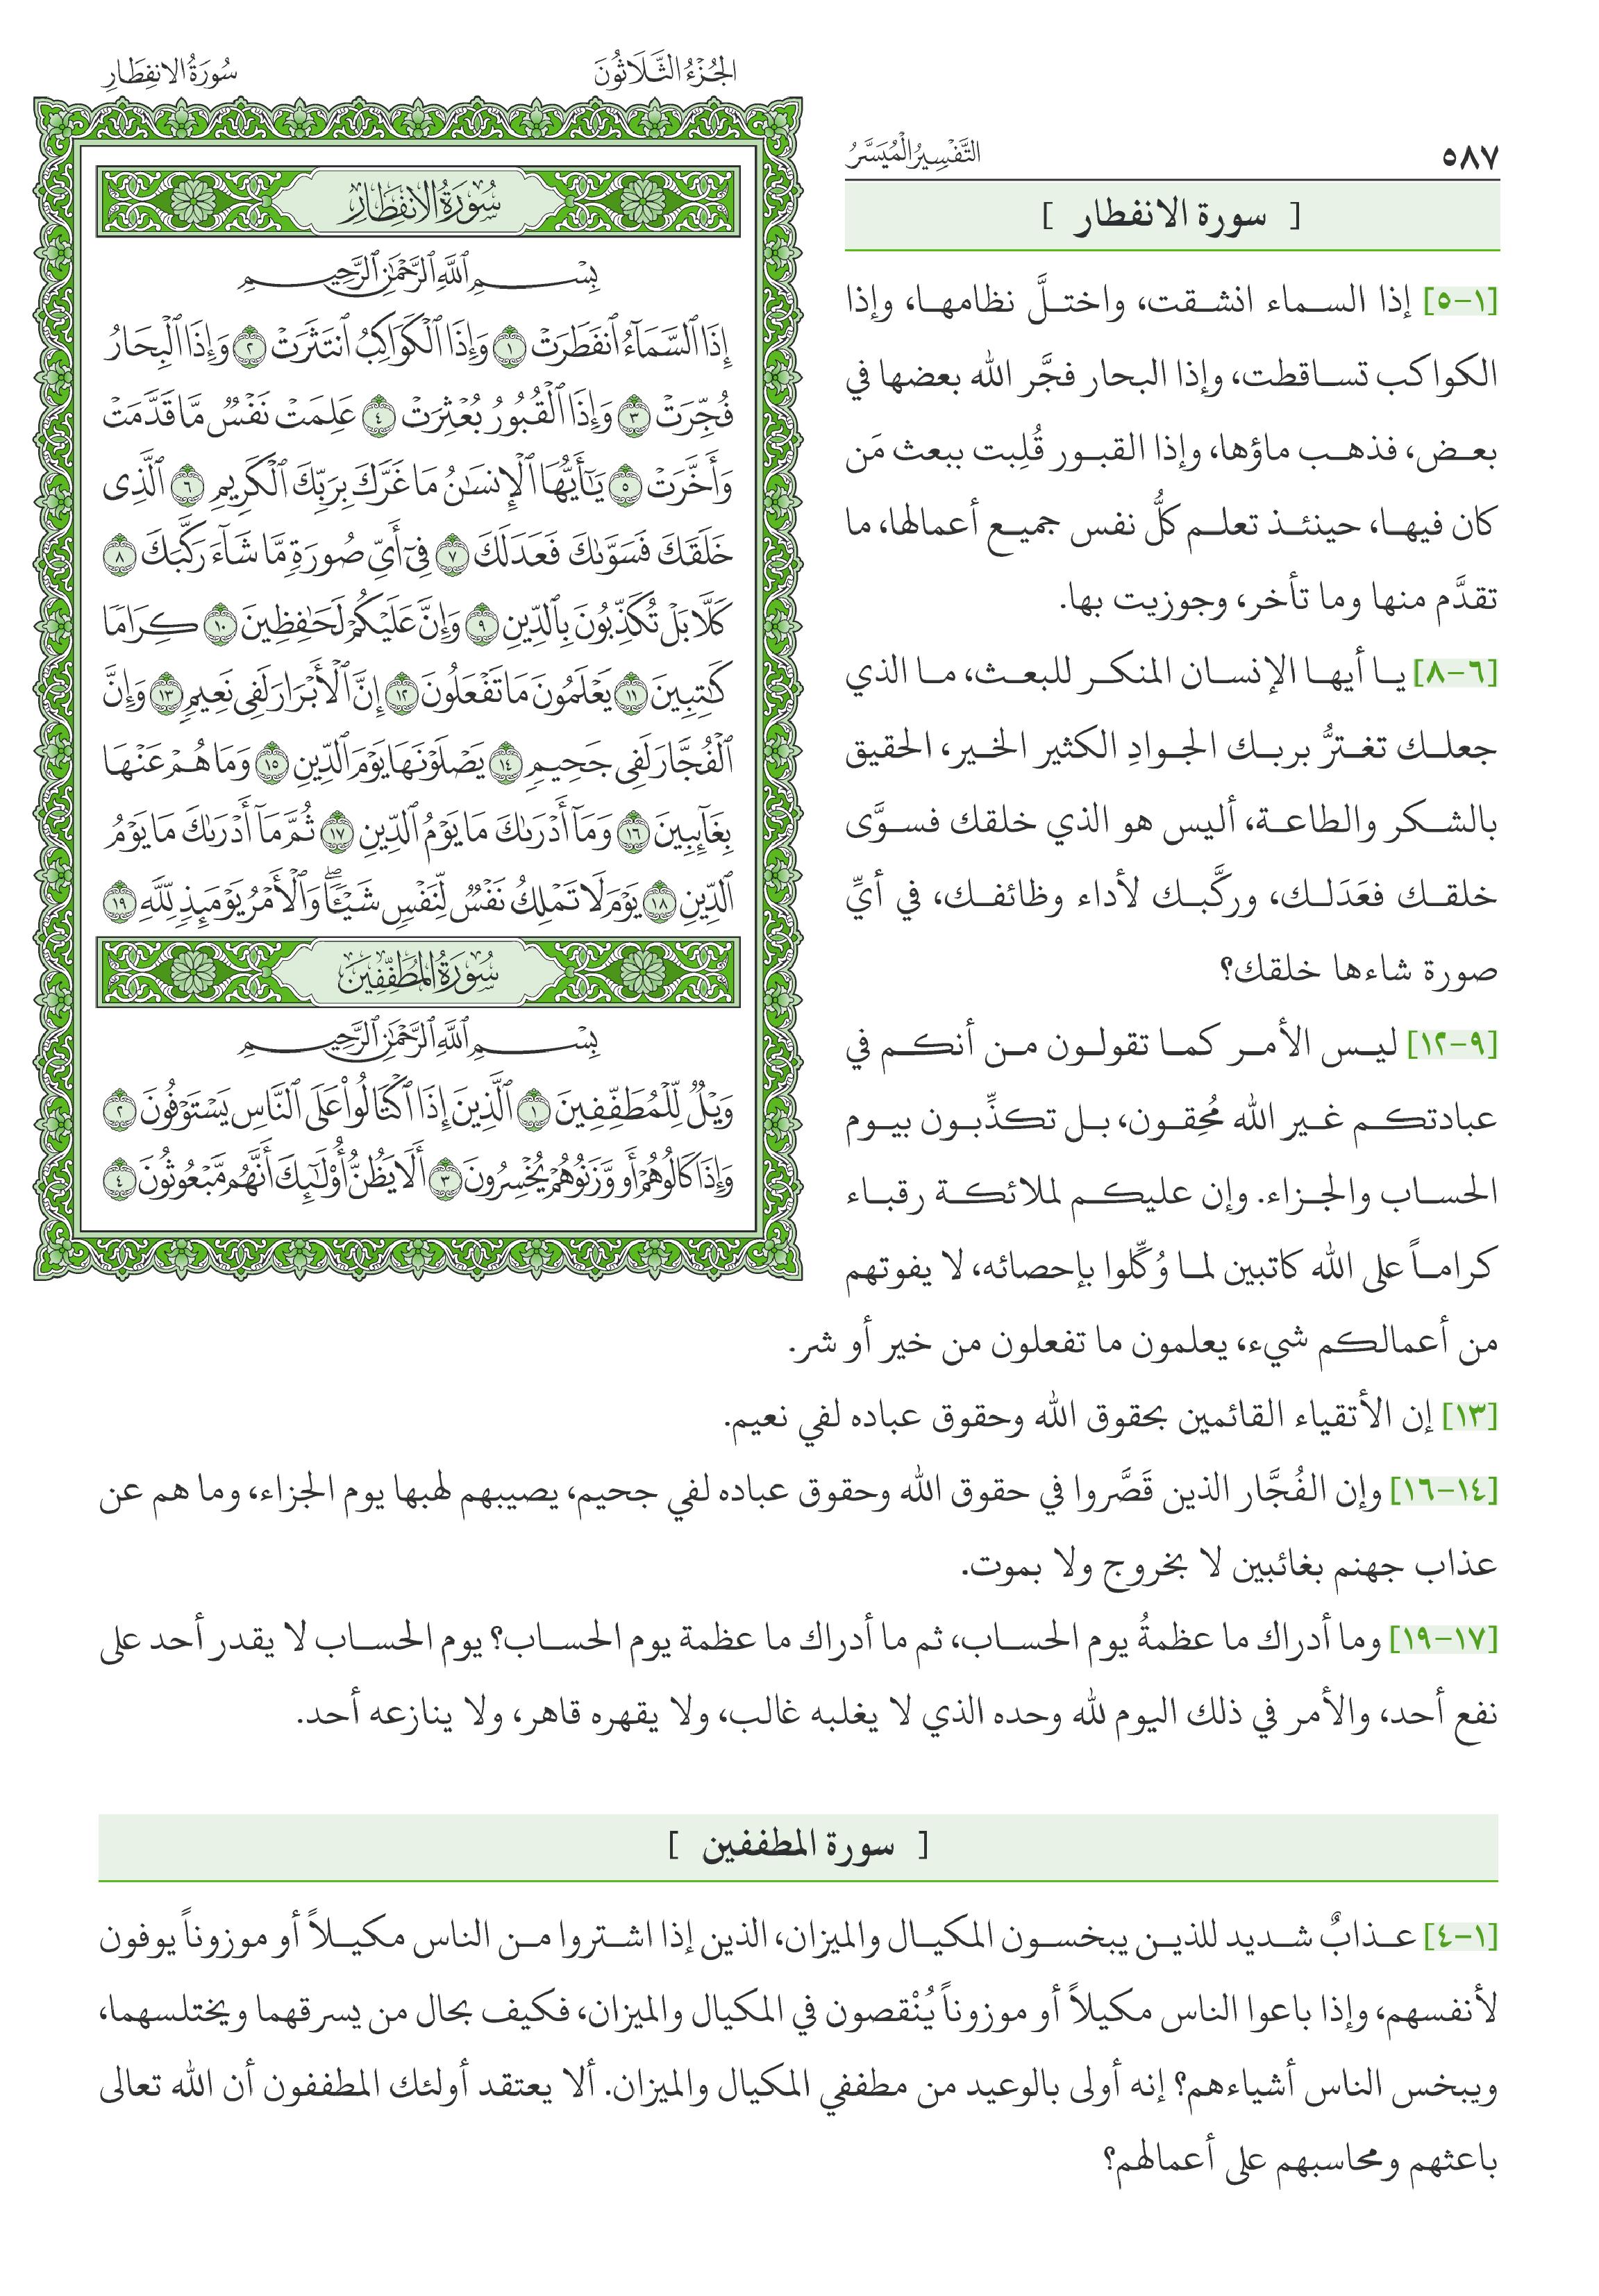 ٥٨٧
التَّفْسِيرُ الْمُيَسَّرُ
الجُزْءُ الثَّلَاثُونَ
سُورَةُ الانفِطَارِ
سُورَةُ الانفِطَارِ
بِسْمِ ٱللَّهِ ٱلرَّحْمَٰنِ ٱلرَّحِيمِ
إِذَا ٱلسَّمَآءُ ٱنفَطَرَتْ ١ وَإِذَا ٱلْكَوَاكِبُ ٱنتَثَرَتْ ٢ وَإِذَا ٱلْبِحَارُ
فُجِّرَتْ ٣ وَإِذَا ٱلْقُبُورُ بُعْثِرَتْ ٤ عَلِمَتْ نَفْسٌ مَّا قَدَّمَتْ
وَأَخَّرَتْ ٥ يَٰٓأَيُّهَا ٱلْإِنسَٰنُ مَا غَرَّكَ بِرَبِّكَ ٱلْكَرِيمِ ٦ ٱلَّذِى
خَلَقَكَ فَسَوَّىٰكَ فَعَدَلَكَ ٧ فِىٓ أَىِّ صُورَةٍ مَّا شَآءَ رَكَّبَكَ ٨
كَلَّا بَلْ تُكَذِّبُونَ بِٱلدِّينِ ٩ وَإِنَّ عَلَيْكُمْ لَحَٰفِظِينَ ١٠ كِرَامًا
كَٰتِبِينَ ١١ يَعْلَمُونَ مَا تَفْعَلُونَ ١٢ إِنَّ ٱلْأَبْرَارَ لَفِى نَعِيمٍ ١٣ وَإِنَّ
ٱلْفُجَّارَ لَفِى جَحِيمٍ ١٤ يَصْلَوْنَهَا يَوْمَ ٱلدِّينِ ١٥ وَمَا هُمْ عَنْهَا
بِغَآئِبِينَ ١٦ وَمَآ أَدْرَىٰكَ مَا يَوْمُ ٱلدِّينِ ١٧ ثُمَّ مَآ أَدْرَىٰكَ مَا يَوْمُ
ٱلدِّينِ ١٨ يَوْمَ لَا تَمْلِكُ نَفْسٌ لِّنَفْسٍ شَيْـًٔا ۖ وَٱلْأَمْرُ يَوْمَئِذٍ لِّلَّهِ ١٩
سُورَةُ المُطَفِّفِينَ
بِسْمِ ٱللَّهِ ٱلرَّحْمَٰنِ ٱلرَّحِيمِ
وَيْلٌ لِّلْمُطَفِّفِينَ ١ ٱلَّذِينَ إِذَا ٱكْتَالُوا۟ عَلَى ٱلنَّاسِ يَسْتَوْفُونَ ٢
وَإِذَا كَالُوهُمْ أَو وَّزَنُوهُمْ يُخْسِرُونَ ٣ أَلَا يَظُنُّ أُو۟لَٰٓئِكَ أَنَّهُم مَّبْعُوثُونَ ٤
[ سورة الانفطار ]
[١-٥] إذا السماء انشقت، واختلَّ نظامها، وإذا
الكواكب تساقطت، وإذا البحار فجَّر الله بعضها في
بعض، فذهب ماؤها، وإذا القبور قُلِبت ببعث مَن
كان فيها، حينئذ تعلم كلُّ نفس جميع أعمالها، ما
تقدَّم منها وما تأخر، وجوزيت بها.
[٦-٨] يا أيها الإنسان المنكر للبعث، ما الذي
جعلك تغترُّ بربك الجوادِ الكثير الخير، الحقيق
بالشكر والطاعة، أليس هو الذي خلقك فسوَّى
خلقك فعَدَلك، وركَّبك لأداء وظائفك، في أيِّ
صورة شاءها خلقك؟
[٩-١٢] ليس الأمر كما تقولون من أنكم في
عبادتكم غير الله مُحِقون، بل تكذِّبون بيوم
الحساب والجزاء. وإن عليكم لملائكة رقباء
كراماً على الله كاتبين لما وُكِّلوا بإحصائه، لا يفوتهم
من أعمالكم شيء، يعلمون ما تفعلون من خير أو شر.
[١٣] إن الأتقياء القائمين بحقوق الله وحقوق عباده لفي نعيم.
[١٤-١٦] وإن الفُجَّار الذين قَصَّروا في حقوق الله وحقوق عباده لفي جحيم، يصيبهم لهبها يوم الجزاء، وما هم عن
عذاب جهنم بغائبين لا بخروج ولا بموت.
[١٧-١٩] وما أدراك ما عظمةُ يوم الحساب، ثم ما أدراك ما عظمة يوم الحساب؟ يوم الحساب لا يقدر أحد على
نفع أحد، والأمر في ذلك اليوم لله وحده الذي لا يغلبه غالب، ولا يقهره قاهر، ولا ينازعه أحد.
[ سورة المطففين ]
[١-٤] عذابٌ شديد للذين يبخسون المكيال والميزان، الذين إذا اشتروا من الناس مكيلاً أو موزوناً يوفون
لأنفسهم، وإذا باعوا الناس مكيلاً أو موزوناً يُنْقصون في المكيال والميزان، فكيف بحال من يسرقهما ويختلسهما،
ويبخس الناس أشياءهم؟ إنه أولى بالوعيد من مطففي المكيال والميزان. ألا يعتقد أولئك المطففون أن الله تعالى
باعثهم ومحاسبهم على أعمالهم؟